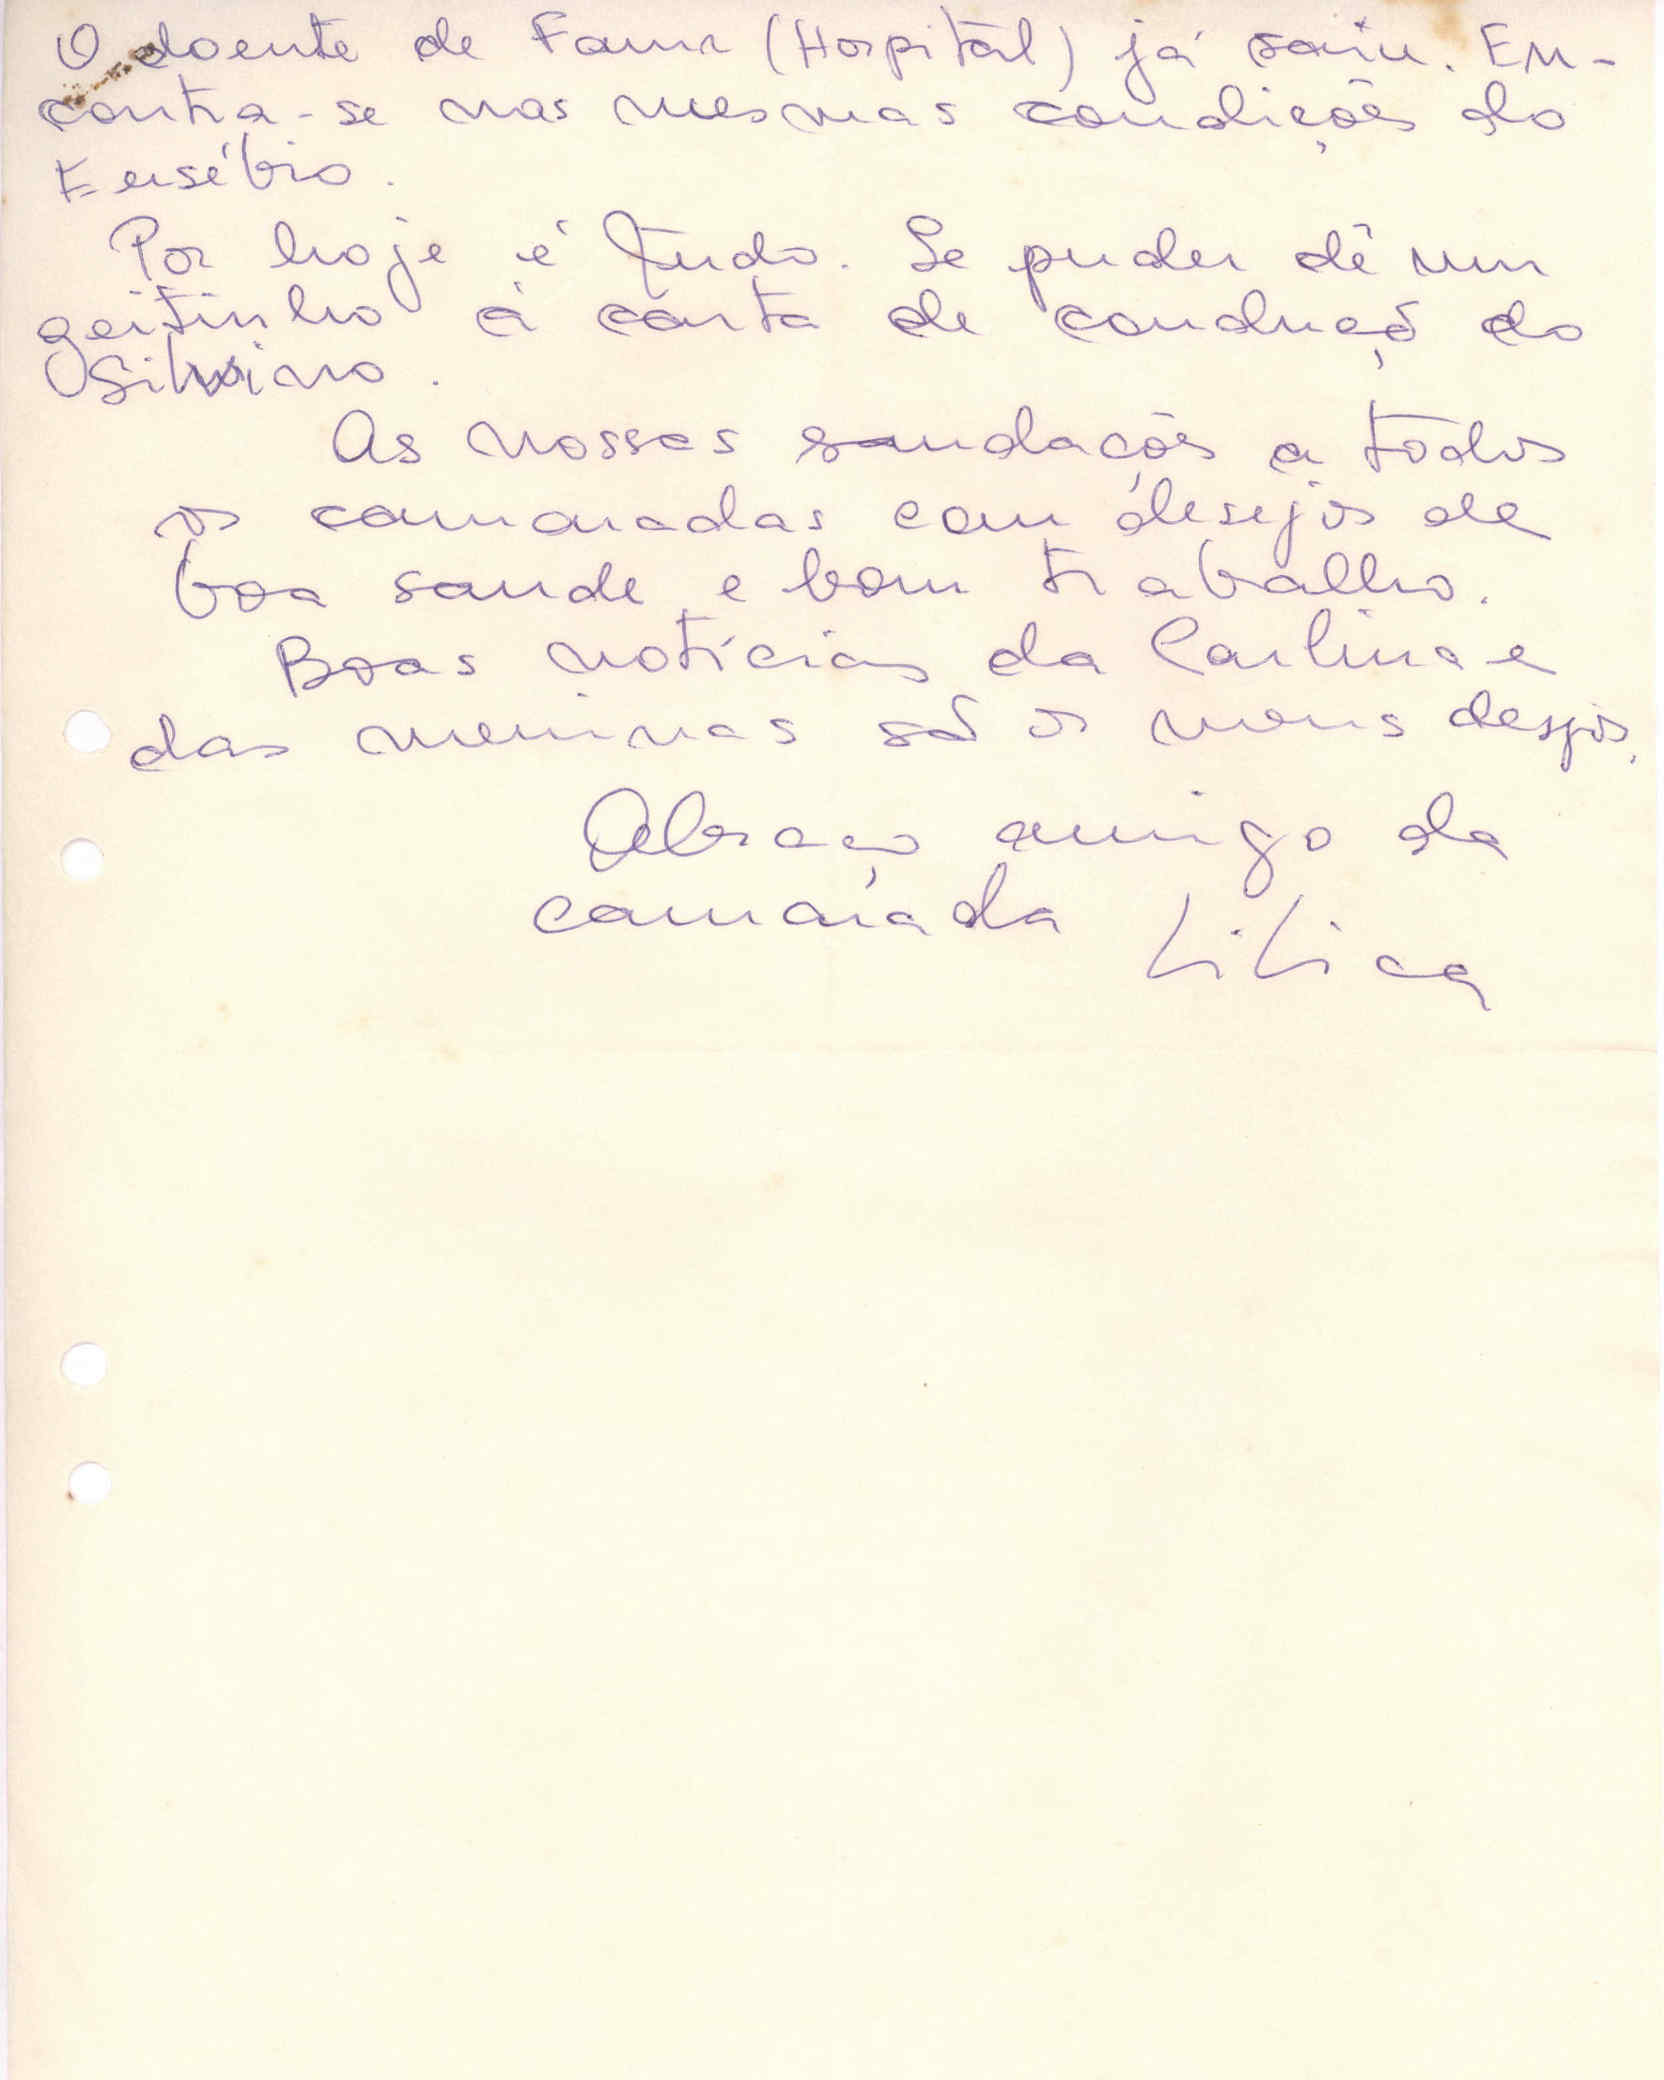 O doente de Fann (Hospital) já saiu. En-
contra-se nas mesmas condições do
Eusébio.
Por hoje é tudo. Se puder dê um
geitinho à carta de condução do
Silvino.
As nossas saudações a todos
os camaradas com desejos de
boa saude e bom trabalho.
Boas notícias da Carlina e
das meninas são os meus desejos.
Abraço amigo da
camarada Lilica